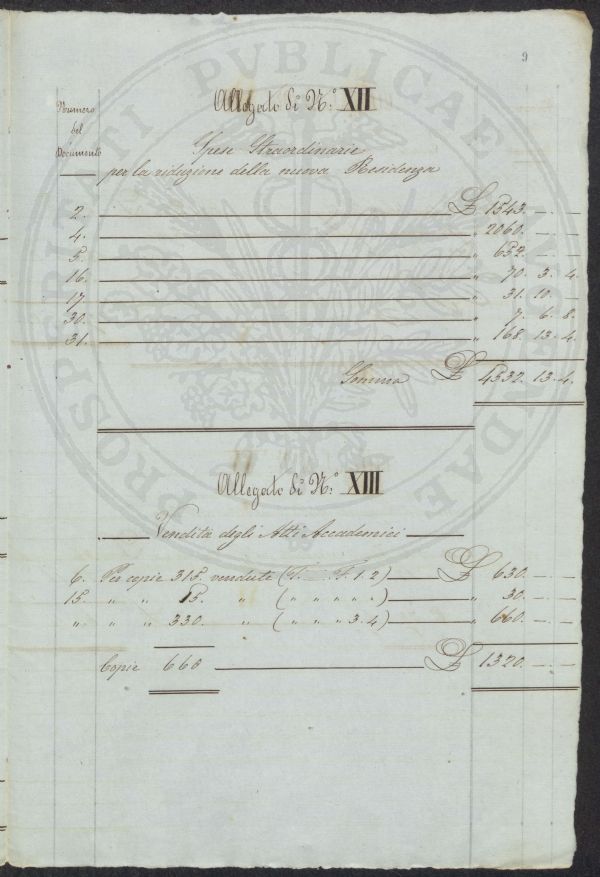 PROSPERITATI PVBLICAE AVGENDAE
9
Allegato di N.º XII
Numero
del
Documento
Spese Straordinarie
per la riduzione della nuova Residenza
2. £ 1543. — —
4. " 2060. — —
5. " 652. — —
16. " 70. 3. 4.
17. " 31. 10. —
30. " 7. 6. 8.
31. " 168. 13. 4.
Somma £ 4532. 13. 4.
Allegato di N.º XIII
Vendita degli Atti Accademici
6. Per copie 315. vendute (T. F. 1. 2) £ 630. — —
15. " " 15. " ( " " " " " ) " 30. — —
" " " 330. " ( " " " 3. 4) " 660. — —
Copie 660 £ 1320. — —